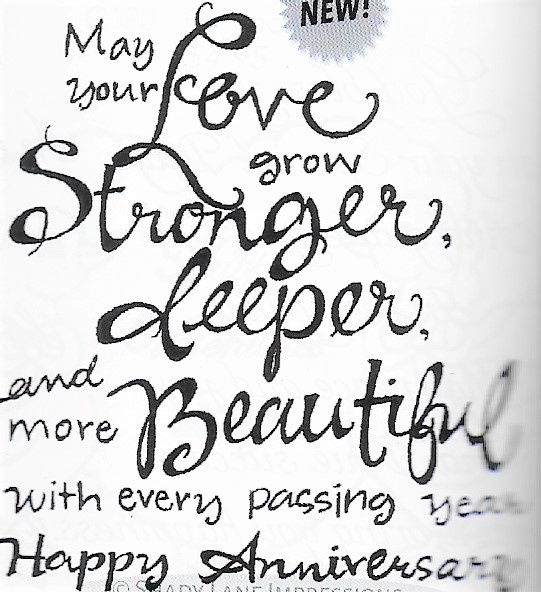 NEW!
May
your Love
grow
Stronger,
deeper,
and
more Beautiful
with every passing year
Happy Anniversary
© SHADY LANE IMPRESSIONS